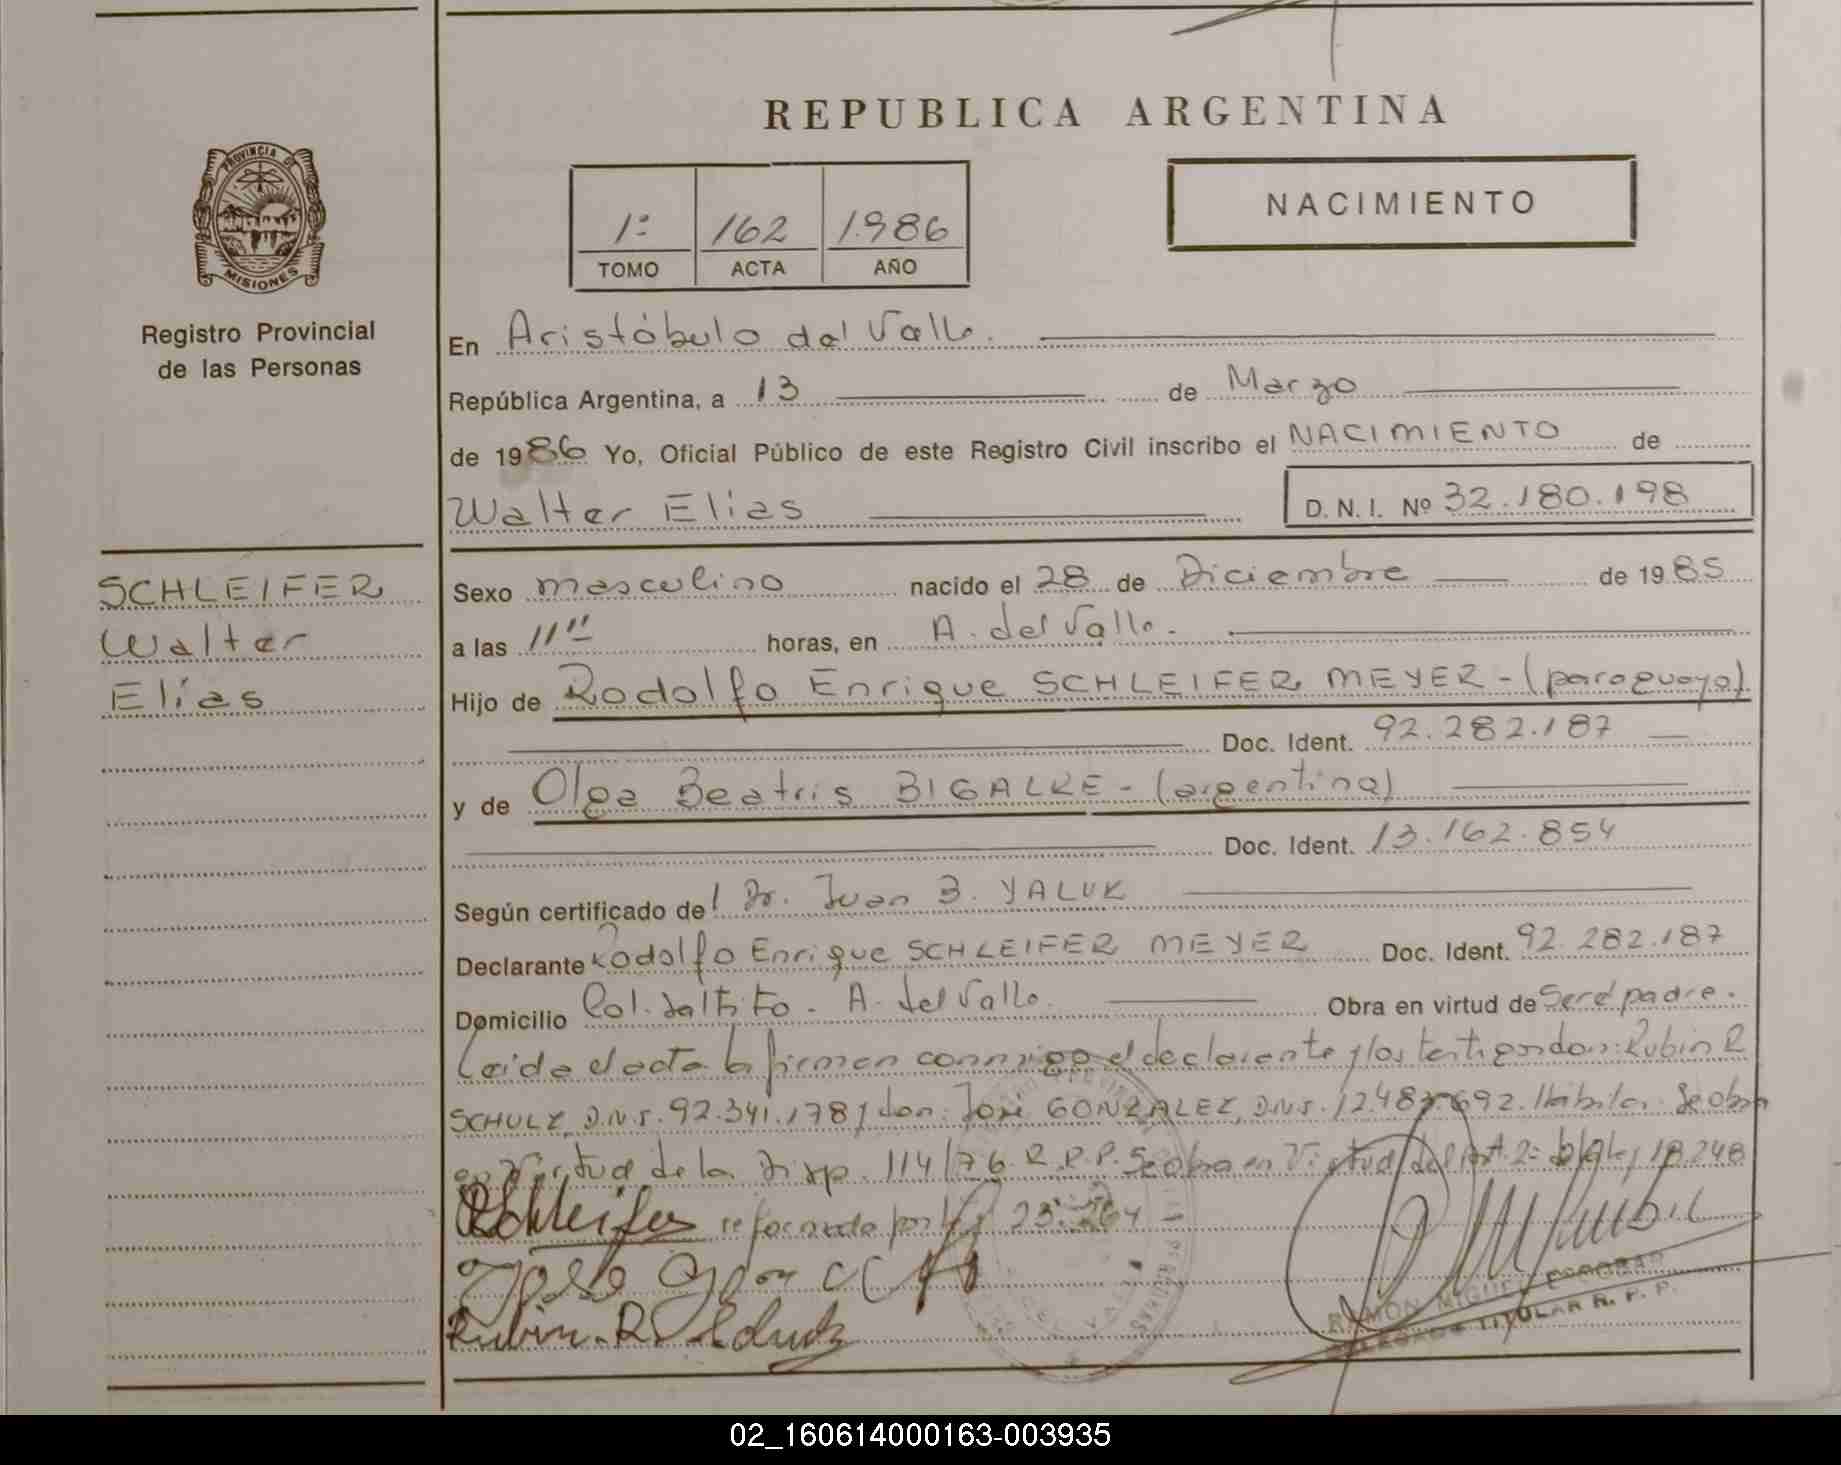 REPUBLICA ARGENTINA
PROVINCIA DE
MISIONES
Registro Provincial
de las Personas
1º 162 1.986
TOMO ACTA AÑO
NACIMIENTO
En Aristóbulo del Valle.
República Argentina, a 13 de Marzo
de 1986 Yo, Oficial Público de este Registro Civil inscribo el NACIMIENTO de
Walter Elias D. N. I. Nº 32.180.198
SCHLEIFER
Walter
Elías
Sexo masculino nacido el 28 de Diciembre de 1985
a las 11 horas, en A. del Valle.
Hijo de Rodolfo Enrique SCHLEIFER MEYER - (paraguayo)
Doc. Ident. 92.282.187
y de Olga Beatris BIGALKE - (argentina)
Doc. Ident. 13.162.854
Según certificado del Dr. Juan B. YALUK
Declarante Rodolfo Enrique SCHLEIFER MEYER Doc. Ident. 92.282.187
Domicilio Col. Saltito - A. del Valle. Obra en virtud de Ser el padre.
Leida el acta la firman conmigo el declarante y los testigos don: Rubin R
SCHULZ, D.N.I. 92.341.178 y don: José GONZALEZ, D.N.I. 12.487.692. Hábiles. Se obra
en Virtud de la Disp. 114/76. R.P.P. Se obra en Virtud del Art. 2º ley 18.248
RSchleifer reformada por ley 23.264 -
Jose Gonzalez
Rubin. R. Schulz
RAMON MIGUEL
DELEGADO TITULAR R. P. P.
02_160614000163-003935